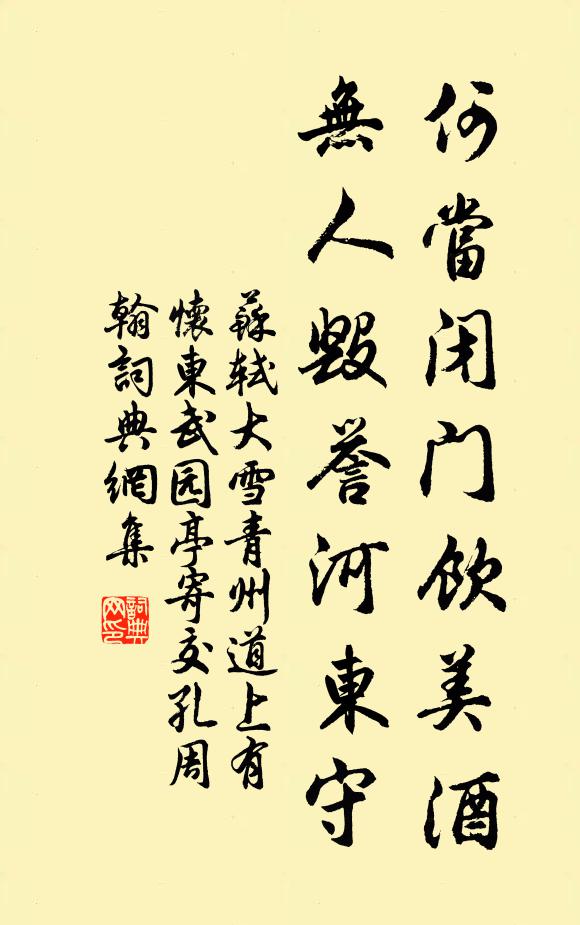 何當閉门飲美酒
無人毀誉河東守
蘇軾大雪青州道上有
懷東武园亭寄交孔周
翰詞典網集
詞典网印